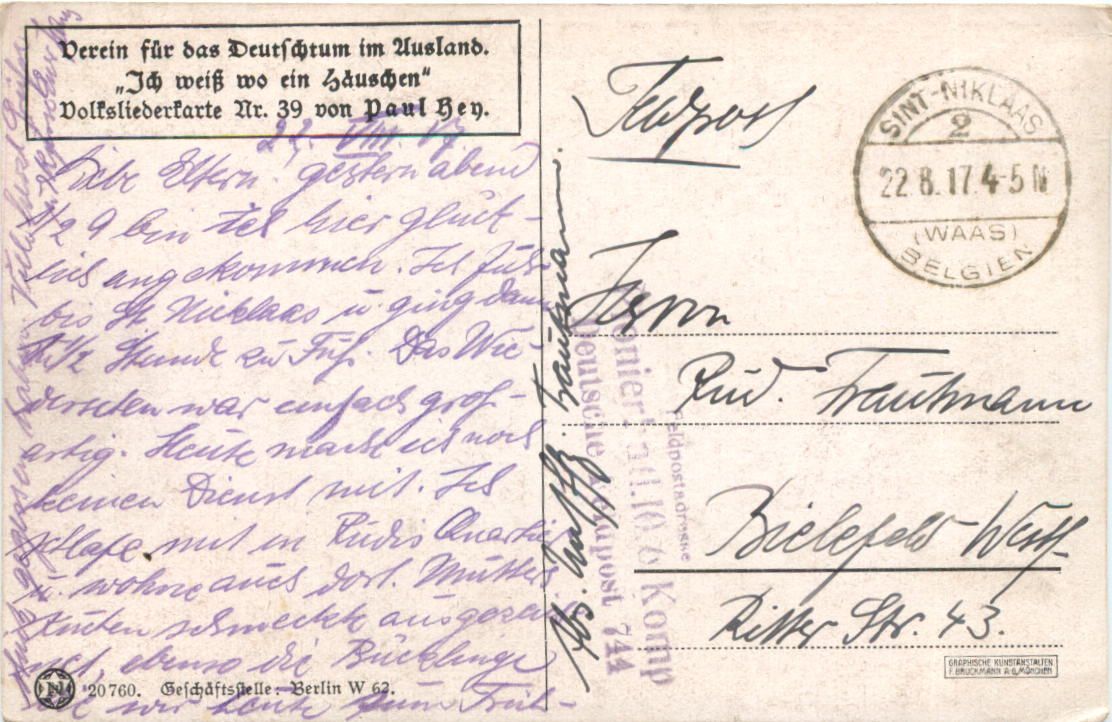 Verein für das Deutschtum im Ausland.
„Ich weiß wo ein Häuschen“
Volksliederkarte Nr. 39 von Paul Hey.
22. VIII. 17
Liebe Eltern. gestern abend
1/2 9 bin ich hier glück-
lich angekommen. Ich fuhr
bis St. Nicklaas u. ging dann
1/2 Stunde zu Fuß. Das Wie-
dersehen war einfach groß-
artig. Heute mache ich noch
keinen Dienst mit. Ich
schlafe mit in Rudis Quartier
u. wohne auch dort. Mutters
Kuchen schmeckte ausgezeich-
net, ebenso die Bücklinge
die wir heute zum Früh-
gegessen haben
20760. Geschäftsstelle: Berlin W 62.
Feldpost
SINT-NIKLAAS
2
22.8.17.4-5 N
(WAAS)
BELGIEN
Herrn
Rud. Trautmann
Bielefeld Westf.
Ritter Str. 43.
Abs. Trautmann.
Feldpostadresse
Komp
Deutsche Feldpost 744
GRAPHISCHE KUNSTANSTALTEN
F. BRUCKMANN A-G, MÜNCHEN